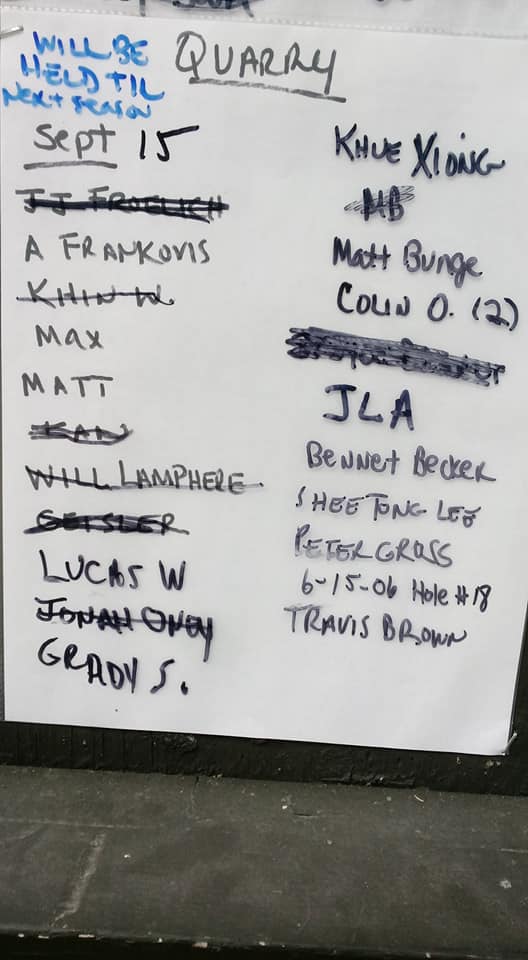 WILL BE
HELD TIL
NEXT SEASON
QUARRY
Sept 15
JJ FROELICH
A FRANKOVIS
KHIN W
Max
MATT
KAN
WILL LAMPHERE
GEISLER
LUCAS W
JONAH ONEY
GRADY S.
KHUE XIONG
MB
Matt Bunge
COLIN O. (2)
JLA
BENNET BECKER
SHEE TONG LEE
PETER GROSS
6-15-06 Hole #18
TRAVIS BROWN